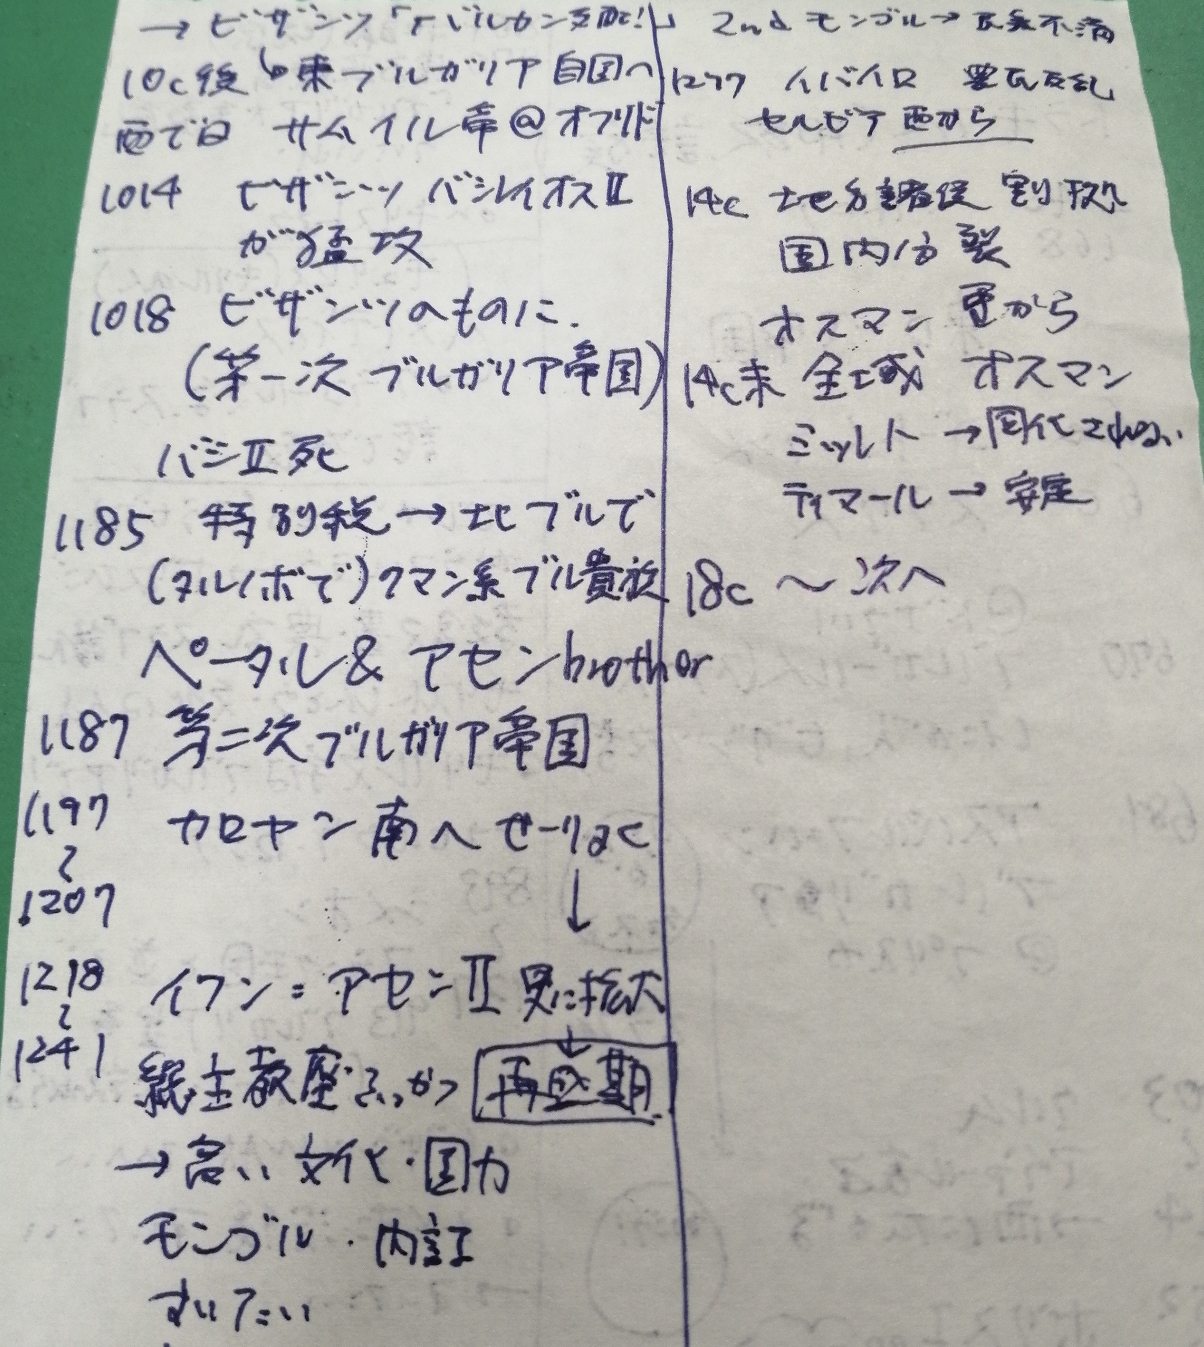 → ビザンツ「バルカン支配!」
10c後 東ブルガリア 自国へ
西では サムイル帝@オフリド
1014 ビザンツ バシレイオスⅡ
が猛攻
1018 ビザンツのものに.
(第一次 ブルガリア帝国)
バシⅡ死
1185 特別税→北ブルで
(タルノボで)クマン系ブル貴族
ペータル&アセンbrother
1187 第二次ブルガリア帝国
1197 カロヤン 南へ せーりょく
〜
1207
↓
1218 イワン=アセンⅡ 更に拡大
〜
1241
↓
総主教座ふっかつ 再盛期
→高い文化・国力
モンゴル・内訌
すいたい
2nd モンゴル→農民不満
1277 イバイロ 農民反乱
セルビア 西から
14c 地方諸侯 割拠
国内分裂
オスマン 東から
14c末 全域 オスマン
ミッレト→同化されない
ティマール→安定
18c 〜次へ